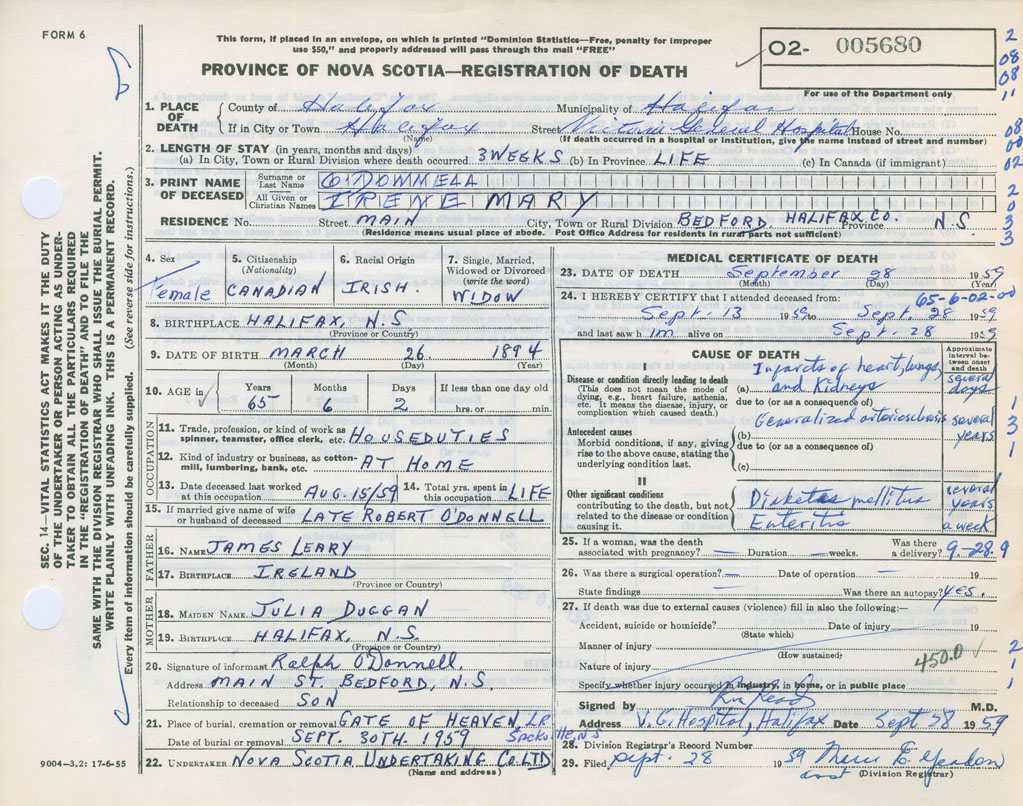 FORM 6
This form, if placed in an envelope, on which is printed "Dominion Statistics—Free, penalty for improper
use $50," and properly addressed will pass through the mail "FREE"
PROVINCE OF NOVA SCOTIA—REGISTRATION OF DEATH
02- 005680
For use of the Department only
2
08
08
11
08
00
02
2
0
3
3
SEC. 14—VITAL STATISTICS ACT MAKES IT THE DUTY
OF THE UNDERTAKER OR PERSON ACTING AS UNDER-
TAKER TO OBTAIN ALL THE PARTICULARS REQUIRED
IN THE "REGISTRATION OF DEATH" AND TO FILE THE
SAME WITH THE DIVISION REGISTRAR WHO SHALL ISSUE THE BURIAL PERMIT.
WRITE PLAINLY WITH UNFADING INK. THIS IS A PERMANENT RECORD.
Every item of information should be carefully supplied. (See reverse side for instructions.)
1. PLACE OF DEATH County of Halifax Municipality of Halifax
If in City or Town Halifax Street Victoria General Hospital House No.
(Name) (If death occurred in a hospital or institution, give the name instead of street and number)
2. LENGTH OF STAY (in years, months and days)
(a) In City, Town or Rural Division where death occurred 3 WEEKS (b) In Province LIFE (c) In Canada (if immigrant)
3. PRINT NAME OF DECEASED Surname or Last Name O'DONNELL
All Given or Christian Names IRENE MARY
RESIDENCE No. Street MAIN City, Town or Rural Division BEDFORD, HALIFAX CO. Province N.S
(Residence means usual place of abode. Post Office Address for residents in rural parts not sufficient)
4. Sex Female
5. Citizenship (Nationality) CANADIAN
6. Racial Origin IRISH.
7. Single, Married, Widowed or Divorced (write the word) WIDOW
8. BIRTHPLACE HALIFAX, N.S
(Province or Country)
9. DATE OF BIRTH MARCH 26 1894
(Month) (Day) (Year)
10. AGE in Years 65 Months 6 Days 2 If less than one day old hrs. or min.
OCCUPATION
11. Trade, profession, or kind of work as
spinner, teamster, office clerk, etc. HOUSEDUTIES
12. Kind of industry or business, as cotton-
mill, lumbering, bank, etc. AT HOME
13. Date deceased last worked at this occupation AUG. 15/59 14. Total yrs. spent in this occupation LIFE
15. If married give name of wife
or husband of deceased LATE ROBERT O'DONNELL
FATHER
16. NAME JAMES LEARY
17. BIRTHPLACE IRELAND
(Province or Country)
MOTHER
18. MAIDEN NAME JULIA DUGGAN
19. BIRTHPLACE HALIFAX, N.S.
(Province or Country)
20. Signature of informant Ralph O'Donnell.
Address MAIN ST. BEDFORD, N.S.
Relationship to deceased SON
21. Place of burial, cremation or removal GATE OF HEAVEN, LR.
Sackville, N.S
Date of burial or removal SEPT. 30TH. 1959
22. UNDERTAKER NOVA SCOTIA UNDERTAKING CO. LTD
(Name and address)
9004-3.2: 17-6-55
MEDICAL CERTIFICATE OF DEATH
23. DATE OF DEATH September 28 1959
(Month) (Day) (Year)
24. I HEREBY CERTIFY that I attended deceased from: 65-6-02-00
Sept. 13 1959 to Sept. 28 1959
and last saw him alive on Sept. 28 1959
CAUSE OF DEATH
Approximate interval between onset and death
I
Disease or condition directly leading to death
(This does not mean the mode of
dying, e.g., heart failure, asthenia,
etc. It means the disease, injury, or
complication which caused death.)
(a) Infarcts of heart, lungs, and Kidneys several days
due to (or as a consequence of)
Antecedent causes
Morbid conditions, if any, giving
rise to the above cause, stating the
underlying condition last.
(b) Generalized arteriosclerosis several years
due to (or as a consequence of)
(c)
1
3
1
II
Other significant conditions
contributing to the death, but not
related to the disease or condition
causing it.
Diabetes mellitus several years
Enteritis a week
25. If a woman, was the death
associated with pregnancy? — Duration —weeks. Was there a delivery? 9-28.9
26. Was there a surgical operation? — Date of operation — 19
State findings Was there an autopsy? Yes.
27. If death was due to external causes (violence) fill in also the following:—
Accident, suicide or homicide? Date of injury 19
(State which)
Manner of injury
(How sustained)
Nature of injury 450.0
Specify whether injury occurred in industry, in home, or in public place
2
1
1
Signed by M.D.
Address V.G. Hospital, Halifax Date Sept 28 1959
28. Division Registrar's Record Number
29. Filed Sept. 28 1959
(Division Registrar)